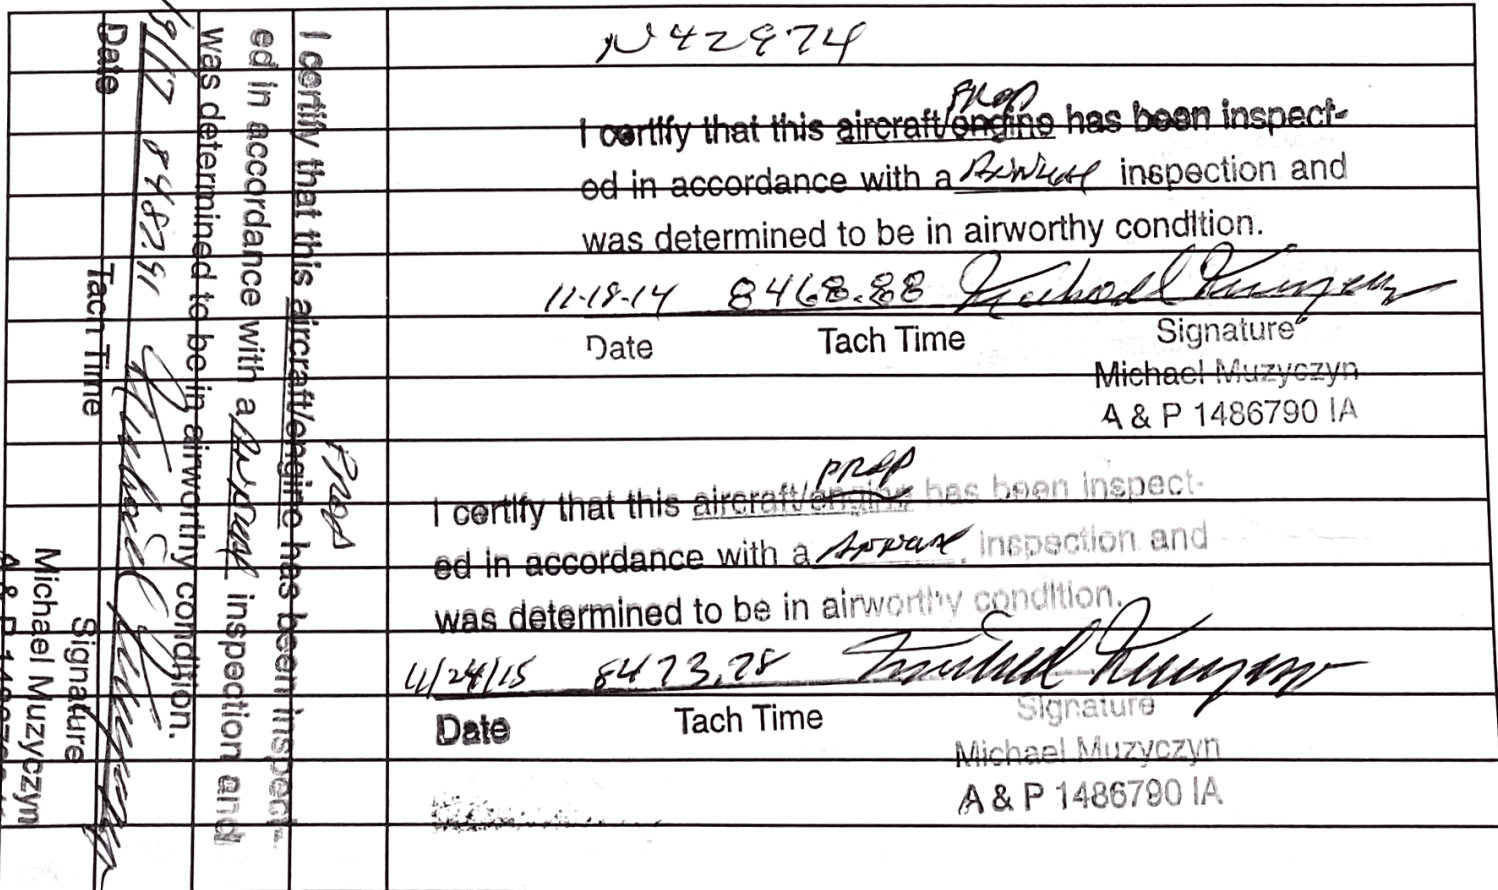 N42974
prop
I certify that this aircraft/engine has been inspect-
ed in accordance with a Annual inspection and
was determined to be in airworthy condition.
11-18-14 8468.88 Michael Muzyczyn
Date Tach Time Signature
Michael Muzyczyn
A & P 1486790 IA
prop
I certify that this aircraft/engine has been inspect-
ed in accordance with a Annual inspection and
was determined to be in airworthy condition.
11/24/15 8473.78 Michael Muzyczyn
Date Tach Time Signature
Michael Muzyczyn
A & P 1486790 IA
Prop
I certify that this aircraft/engine has been inspect-
ed in accordance with a Annual inspection and
was determined to be in airworthy condition.
Michael Muzyczyn
Date Tach Time Signature
Michael Muzyczyn
A & P